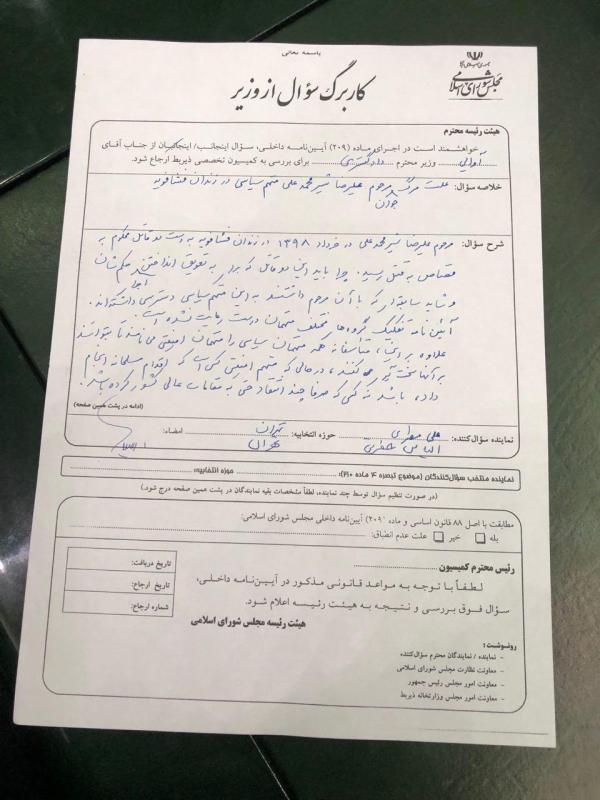 باسمه تعالی
جمهوری اسلامی ایران
مجلس شورای اسلامی
کاربرگ سؤال از وزیر
هیئت رئیسه محترم
خواهشمند است در اجرای ماده (۲۰۹) آیین‌نامه داخلی، سؤال اینجانب/ اینجانبان از جناب آقای
آوایی وزیر محترم دادگستری برای بررسی به کمیسیون تخصصی ذیربط ارجاع شود.
خلاصه سؤال: علت مرگ مرحوم علیرضا شیرمحمدعلی متهم سیاسی در زندان فشافویه
جوان
شرح سؤال: مرحوم علیرضا شیرمحمدعلی در خرداد ۱۳۹۸ در زندان فشافویه به دست دو قاتل محکوم به
قصاص به قتل رسید. چرا باید این دو قاتل که برای به تعویق انداختن اجرای حکم‌شان
و شاید سابقه‌ای که با آن مرحوم داشتند به این متهم سیاسی دسترسی داشته‌اند.
آئین نامه تفکیک گروه‌های مختلف متهمان درست رعایت نشده است.
علاوه بر این، متأسفانه همه متهمان سیاسی را متهمان امنیتی می‌نامند تا بتوانند
بر آنها سخت‌گیری کنند، در حالی که متهم امنیتی کسی است که اقدام مسلحانه انجام
داده باشد نه کسی که صرفا چند انتقاد حتی به مقامات عالی کشور کرده باشد.
(ادامه در پشت همین صفحه)
نماینده سؤال‌کننده: علی مطهری حوزه انتخابیه: تهران امضاء:
تهران
نماینده منتخب سؤال‌کنندگان (موضوع تبصره ۴ ماده ۲۱۰): حوزه انتخابیه:
(در صورت تنظیم سؤال توسط چند نماینده، لطفاً مشخصات بقیه نمایندگان در پشت همین صفحه درج شود.)
مطابقت با اصل ۸۸ قانون اساسی و ماده (۲۰۹) آیین‌نامه داخلی مجلس شورای اسلامی:
بله خیر علت عدم انطباق:
رئیس محترم کمیسیون
لطفاً با توجه به مواعد قانونی مذکور در آیین‌نامه داخلی،
سؤال فوق بررسی و نتیجه به هیئت رئیسه اعلام شود.
هیئت رئیسه مجلس شورای اسلامی
تاریخ دریافت:
تاریخ ارجاع:
شماره ارجاع:
رونوشت:
- نماینده / نمایندگان محترم سؤال‌کننده
- معاونت نظارت مجلس شورای اسلامی
- معاونت امور مجلس رئیس جمهور
- معاونت امور مجلس وزارتخانه ذیربط